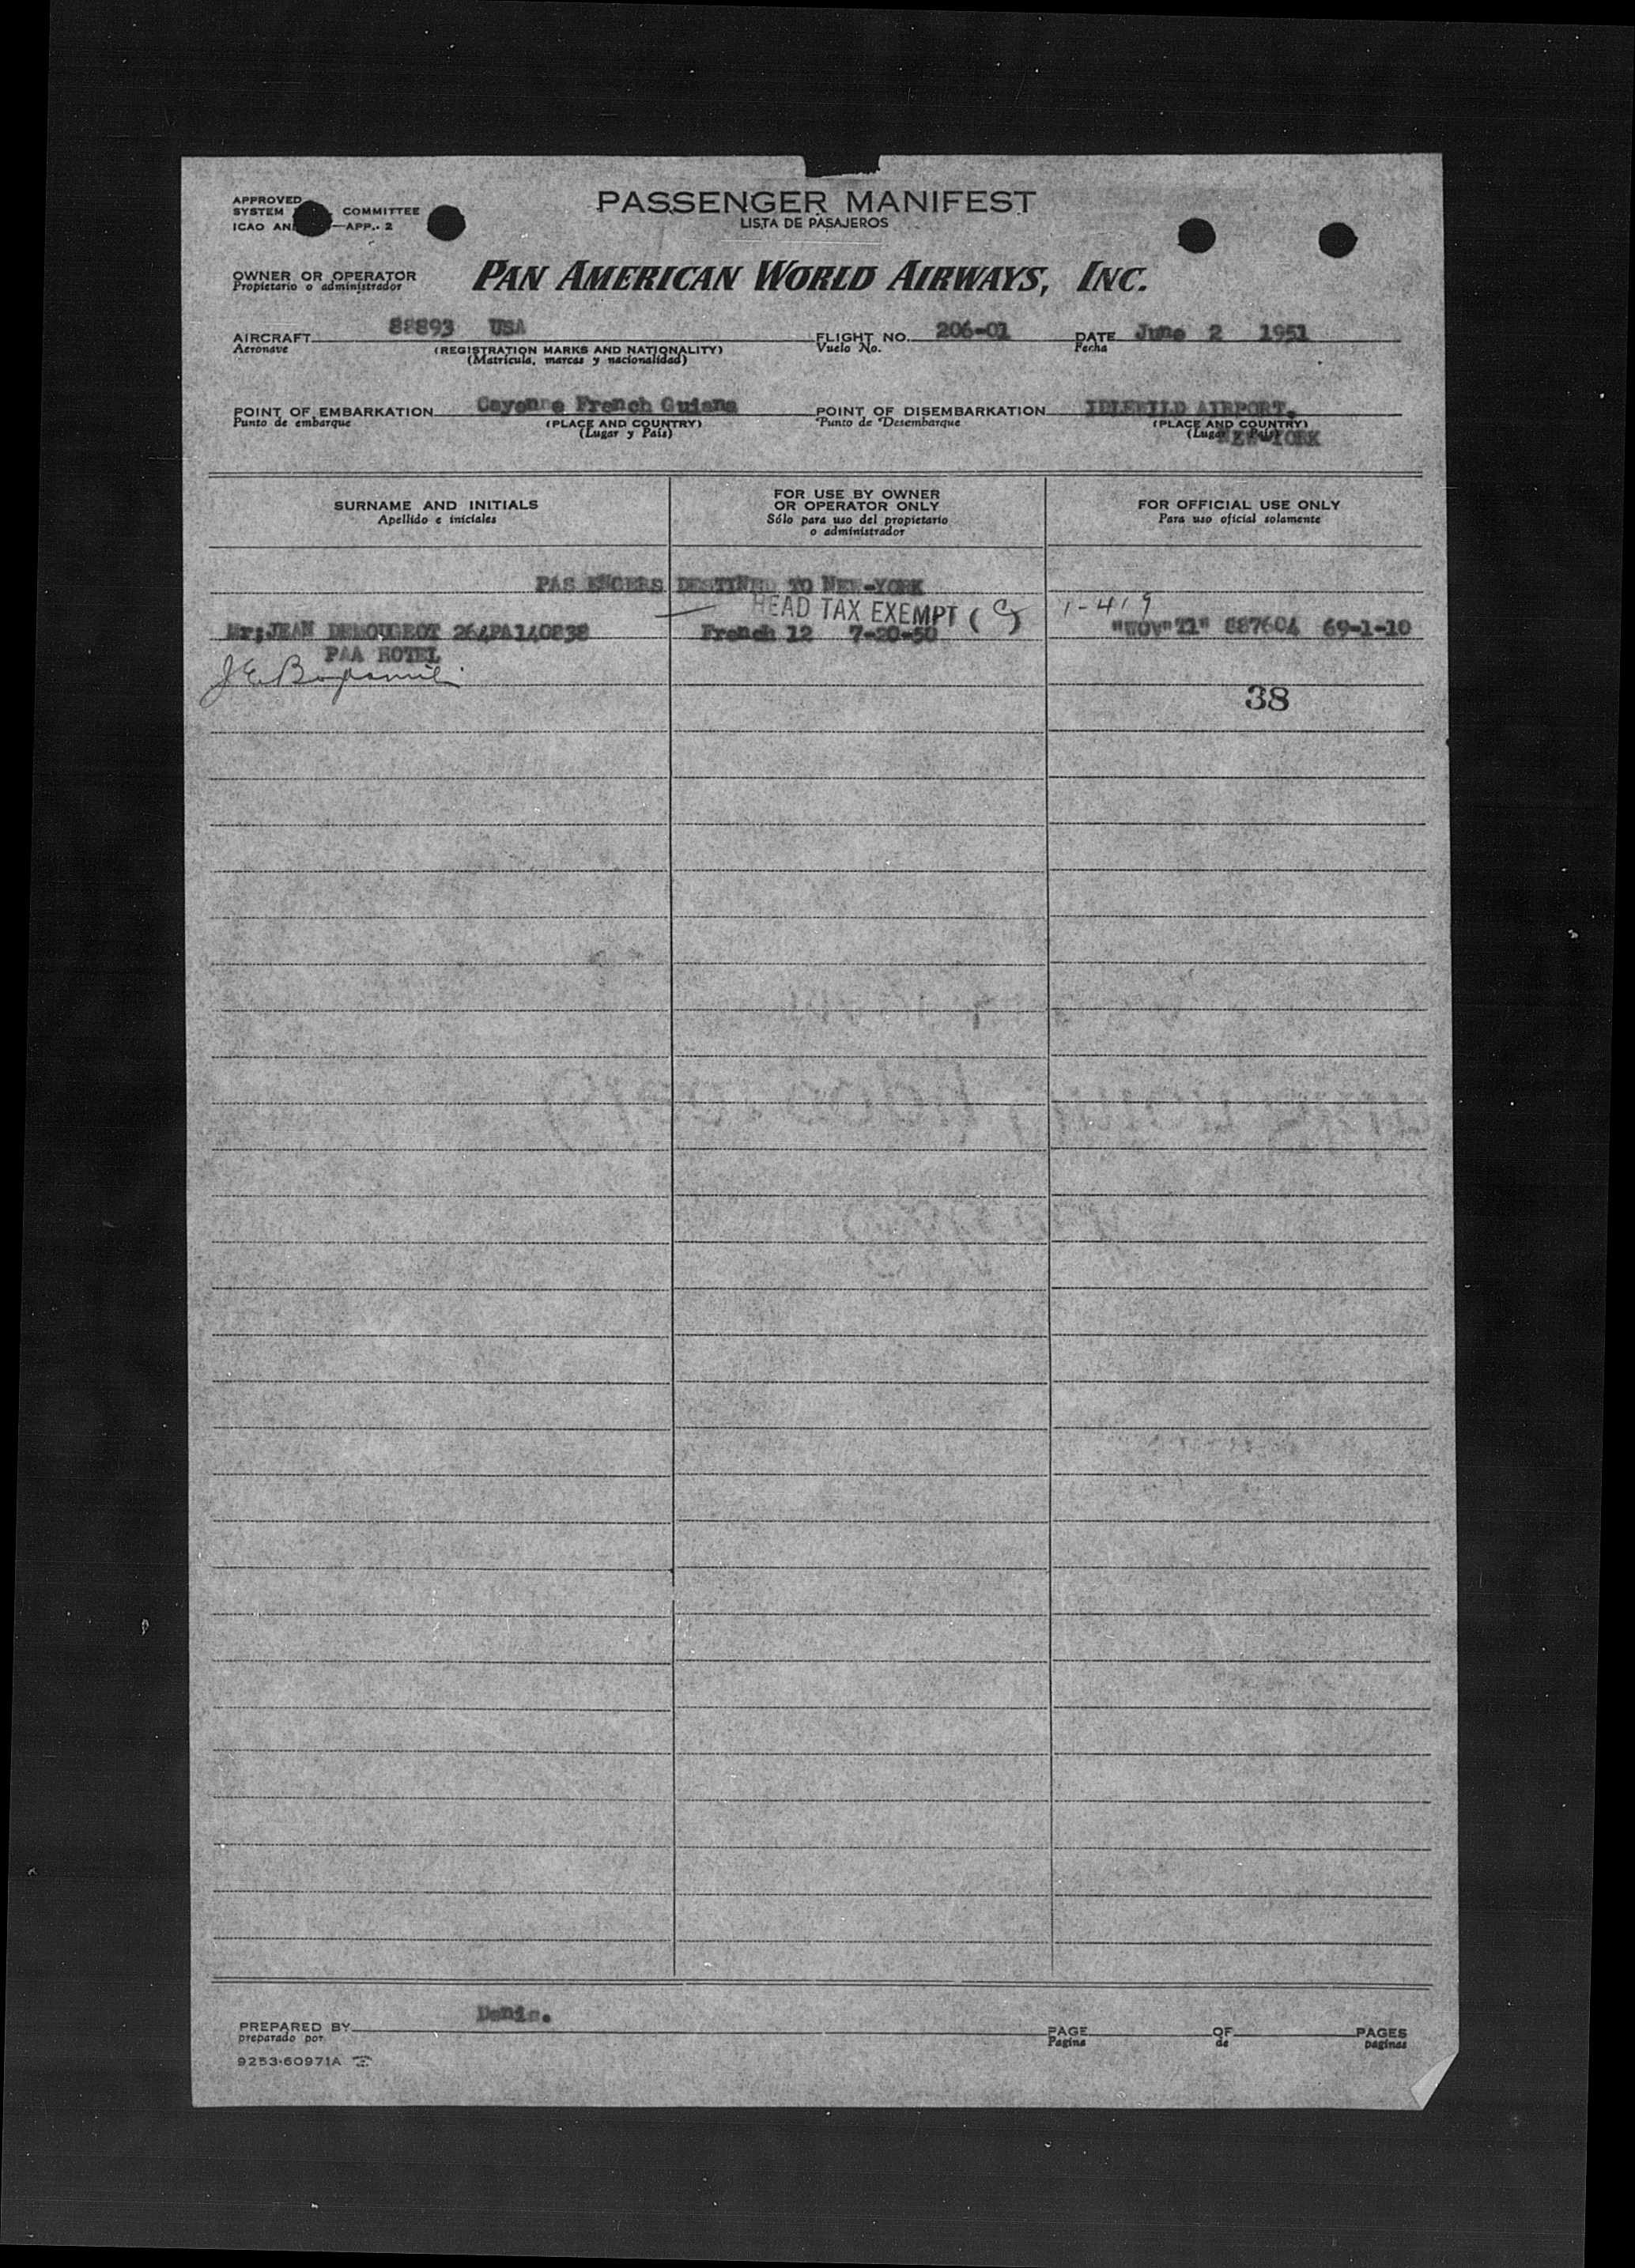 APPROVED
SYSTEM COMMITTEE
ICAO AN —APP.- 2
PASSENGER MANIFEST
LISTA DE PASAJEROS
OWNER OR OPERATOR
Propietario o administrador
PAN AMERICAN WORLD AIRWAYS, INC.
AIRCRAFT 88893 USA FLIGHT NO. 206-01 DATE June 2 1951
Aeronave (REGISTRATION MARKS AND NATIONALITY) Vuelo No. Fecha
(Matrícula, marcas y nacionalidad)
POINT OF EMBARKATION Cayenne French Guiana POINT OF DISEMBARKATION IDLEWILD AIRPORT,
Punto de embarque (PLACE AND COUNTRY) Punto de Desembarque (PLACE AND COUNTRY)
(Lugar y País) (Lugar y País) NEW-YORK
SURNAME AND INITIALS
Apellido e iniciales
FOR USE BY OWNER
OR OPERATOR ONLY
Sólo para uso del propietario
o administrador
FOR OFFICIAL USE ONLY
Para uso oficial solamente
PAS ENGERS DESTINED TO NEW-YORK
HEAD TAX EXEMPT ( 9 ) 1-419
Mr;JEAN DEMOUGEOT 264PA140838 French 12 7-20-50 "WOV"Z1" 887604 69-1-10
PAA HOTEL
38
PREPARED BY Denis. PAGE OF PAGES
preparado por Pagina de paginas
9253-60971A